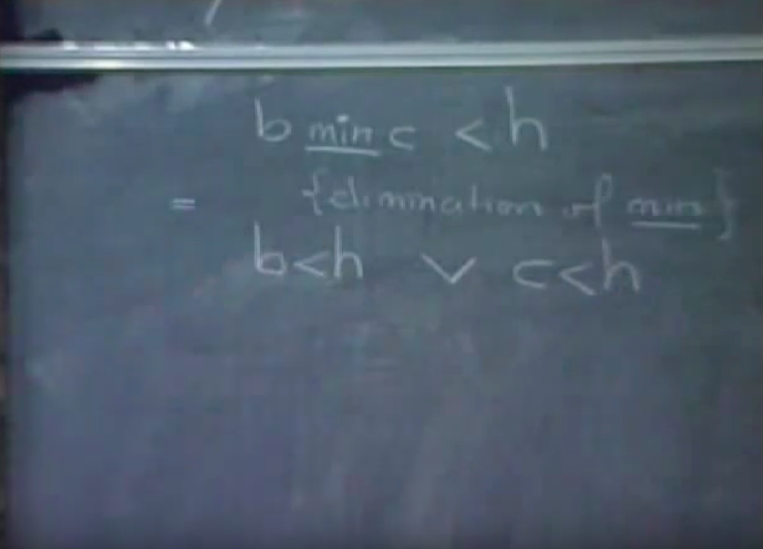 b min c < h
= {elimination of min}
b<h ∨ c<h